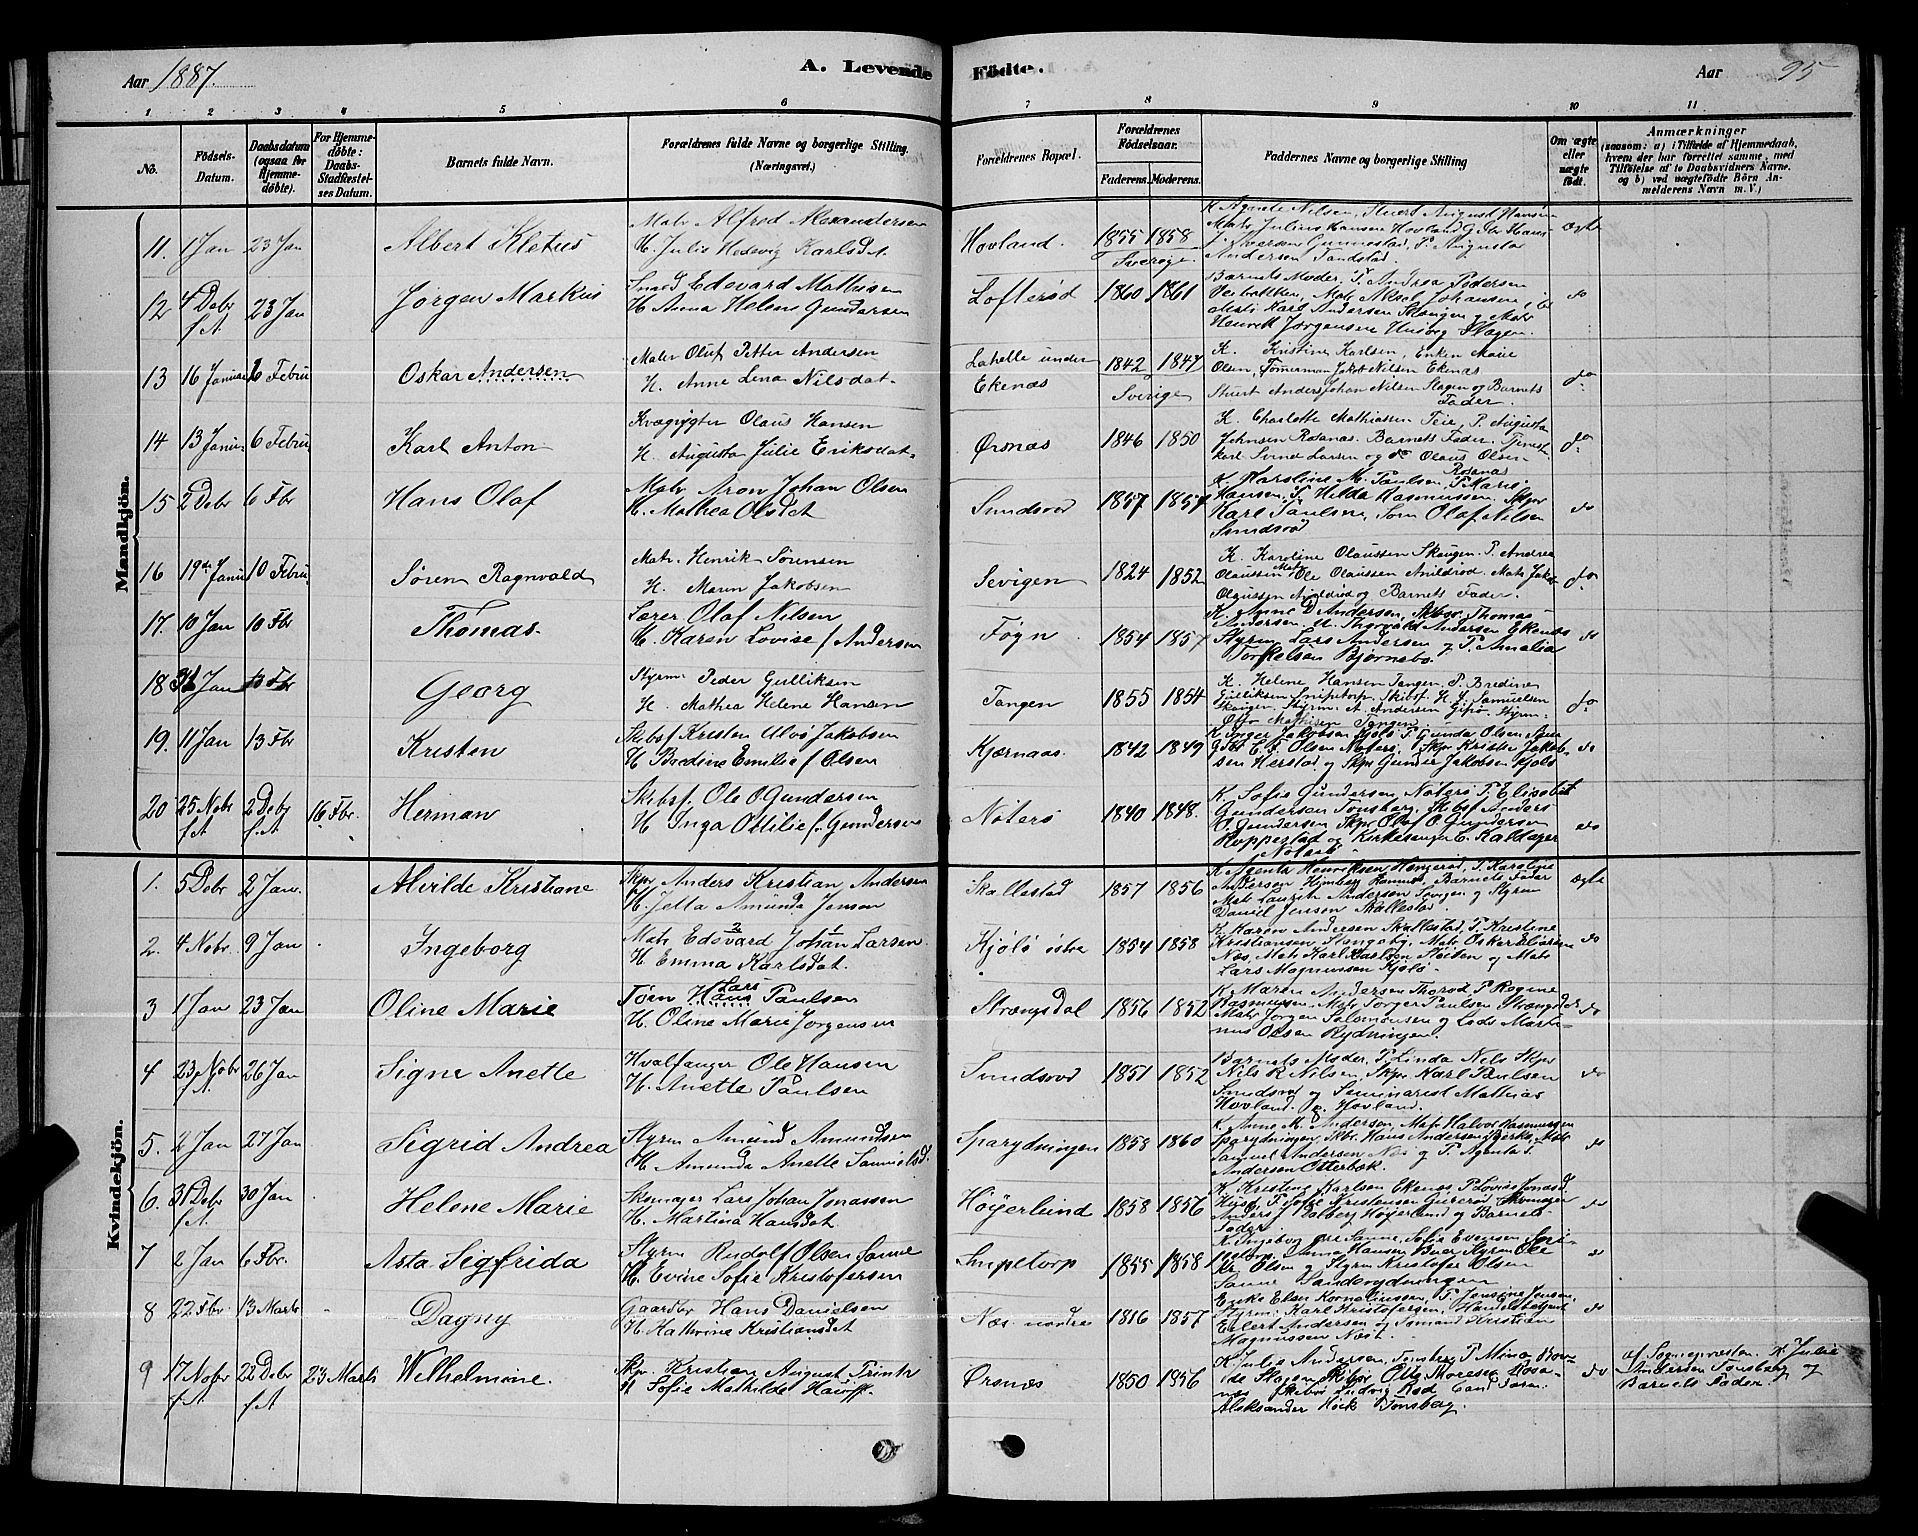 Aar 1887.
A. Levende Födte.
Aar
95
1 2 3 4 5 6 7 8 9 10 11
No.
Födsels-Datum.
Daabsdatum (ogsaa for Hjemmedøbte).
For Hjemmedøbte: Daabs-Stadfæstelses Datum.
Barnets fulde Navn.
Forældrenes fulde Navne og borgerlige Stilling. (Næringsvei.)
Forældrenes Bopæl.
Forældrenes Födselsaar.
Faderens. Moderens.
Faddernes Navne og borgerlige Stilling
Om ægte eller uægte født.
Anmærkninger
(saasom: a) i Tilfælde af Hjemmedaab, hvem der har forrettet samme, med Tilföielse af to Daabsvidners Navne, og b) ved uægtefödte Börn Anmelderens Navn m. V.)
Mandkjön.
11. 1 Jan 23 Jan Albert Kletus
Matr Alfred Alexandersen
H. Julie Hedevig Karlsdat.
Hovland. 1855 1858 Sverige
K Agnete Nilsen, Stuert August Hansen
Matr Julius Hansen Hovland
Iversen Gunnestad, P. Augusta
Andersen
ægte
12 4 Debr f.A. 23 Jan Jørgen Markus
Smed Edevard Mathisen
H. Anna Helene Gundersen
Lofterød 1860 1861
Barnets Moder, P. Andrea Pedersen
Veibakken, Matr Aksel Johansen,
Karl Andersen Skaugen og Matr
Henrik Jørgensen Husvg Slagen.
do
13 16 Januar 6 Febru Oskar Andersen
Matr Oluf Petter Andersen
H. Anne Lena Nilsdat.
Lahelle under Ekenæs 1842 1847 Sverige
K. Kristine Karlsen, Enken Marie
Olsen, Tømerman Jakob Nilsen Ekenæs
Stuert Anders Johan Nilsen Slagen og Barnets
Fader.
do
14 13 Januar 6 Febru Karl Anton
Kvægrygter Olaus Hansen
H. Augusta Julie Eriksdat.
Ørsnæs 1846 1850
K. Charlotte Mathiassen Teie, P. Augusta
Johnsen Rosanæs. Barnets Fader. Tjenest-
karl Svend Larsen og do Olaus Olsen
Rosanæs
do
15 2 Debr 6 Fbr Hans Olaf
Matr Aron Johan Olsen
H. Mathea Olsdat
Sundsrød 1857 1857
K. Karoline M. Paulsen, P Marie
Hansen, P. Hilda Rasmussen, Skpr
Karl Paulsen, Sem Olaf Nilsen
Sundsrød
do
16 19de Janu 10 Febru Søren Ragnvald
Matr Henrik Sørensen
H. Maren Jakobsen
Sevigen 1824 1852
K. Karoline Olaussen Skaugen. P. Andrea
Olaussen Matr Ole Olaussen Arildrød. Matr Jakob
Olaussen Arildrød og Barnets Fader.
do
17. 10 Jan 10 Fbr Thomas.
Lærer Olaf Nilsen
H. Karen Lovise f Andersen
Føyn 1854 1857
K. Anne D Andersen, Skbr Thomas
Andersen, U. Thorvald Andersen Ekenæs
Styrm Lars Andersen og P. Amalia
Torkelsen Bjørnebo.
do
18 31 Jan 13 Fbr Georg
Styrm Peder Gulliksen
H. Mathea Helene Hansen
Tangen 1855 1854
K. Helene Hansen Tangen, P. Bredine
Gulliksen Snipetorp, Skibsf. H. J. Samuelsen
Skaugen. Styrm. A. Andersen Gipø. Styrm.
Otto Mathisen Tangen
do
19. 11 Jan 13 Fbr Kristen
Skibsf Kristen Ulvø Jakobsen
H Bredine Emilie f Olsen
Kjærnaas. 1842 1849
K Torger Jakobsen Kjølø P Gunda Olsen,
Gbr C. F. Olsen Nøterø, Skpr Krister Jakob-
sen Herstad og Skpr Gunder Jakobsen Kjølø
do
20 25 Nobr f.A 2 Debr f.A. 16 Fbr. Herman
Skibsf. Ole O Gundersen
H Inga Ottilie f. Gundersen
Nøterø 1840 1848.
K Sofie Gundersen, Nøterø P. Elisabet
Gundersen Tønsberg, Skibsf Anders
O. Gundersen, Skpr Olaf O Gundersen
Hoppestad og Kirkesanger C. Kaldager
Nøterø
do
Kvindekjön.
1. 5 Debr 2 Jan. Alvilde Kristiane
Skpr Anders Kristian Andersen
H. Jetta Amunda Jensen
Skallestad 1857 1856
K Agenta Henriksen Hengerød, P. Karoline
Andersen Hjemberg Ramnes, Barnets Fader
Matr Lauritz Andersen Tangen og Styrm
Daniel Jensen Skallestad.
ægte
2. 4 Nobr 9 Jan Ingeborg
Matr Edevard Johan Larsen.
H. Emma Karlsdat.
Kjøløs østre 1854 1858
K. Karen Andersen Skallestad, P. Kristine
Kristiansen Stangeby, Matr Oskar Eliasen
Næs, Matr Karl Karlsen Støiten og Matr
Lars Magnussen Kjølø.
do
3 1 Jan 23 Jan Oline Marie
Tøm Hans Lars Paulsen
H. Oline Marie Jørgensen
Strængsdal 1856 1852
K. Maren Andersen Thorød P Regine
Rasmussen, Matr Torger Paulsen Strængsdal
Matr Jørgen Salomonsen og Lods Marti-
nus Olsen Rydningen.
do
4 23 Nobr f.A 26 Jan Signe Anette
Hvalfanger Ole Hansen
H. Anette Paulsen
Sundsrød 1851 1852
Barnets Moder, P. Linda Nils Skpr
Nils R Nilsen, Skpr Karl Paulsen
Sundsrød og Seminarist Mathias
Hovland. p. Hovland.
do
5. 2 Jan 27 Jan Sigrid Andrea
Styrm Amund Amundsen
H. Amunda Anette Samuelsd.
Sparydningen 1858 1860
K. Anne M. Andersen, Matr Halvor Rasmussen
Sparydningen, Skbr. Hans Andersen Berks, Matr
Samuel Andersen Næs og P. Agenta S.
Andersen Otterbæk.
do
6. 31 Debr f.A. 30 Jan Helene Marie
Skomager Lars Johan Jonassen
H. Martina Hansdat.
Høyerlund 1858 1856
K. Kristine Karlsen Ekenæs, P Lovise Jonasd.
P Sofie Kristensen Gurerød, Skomager
Anders J Dalberg Høyerlund og Barnets
Fader.
do
7 2 Jan 6 Fbr. Asta Sigfrida
Styrm Rudolf Olsen Sanne
H. Evine Sofie Kristofersen
Snipetorp 1855 1858
K. Ingeborg Ole Sanne, Sofie Evensen Sni-
petorp, Anna Hansen Buer Styrm Ole
Kr. Olsen og Styrm Kristofer Olsen
Sanne Sanderydningen
do
8 22 Fbr. 13 Marts Dagny
Gaardbr Hans Danielsen
H. Kathrine Kristiansdat
Næs nordre 1816 1857
Enke Elen Korneliussen, P. Jensine Jensen,
Styrm. Karl Kristofersen, Handelsbetjent
Eilert Andersen og Sømand Kristian
Magnussen Nøst.
do
9 17 Nobr f.A 22 Debr f.A 23 Marts Wilhelmine.
Skpr. Kristian August Trinkr
H Sofie Mathilde Hauff.
Ørsnæs 1850 1856
K. Julie Andersen, Tønsberg P Mina Bor-
de Slagen, Skibr Otto Thoresen Rosa-
næs, Skibr Ludvig Rød Cand Farm.
Aleksander Høck Tønsberg.
do
af Sognepresten. K Julie
Andersen Tønsberg og
Barnets Fader.